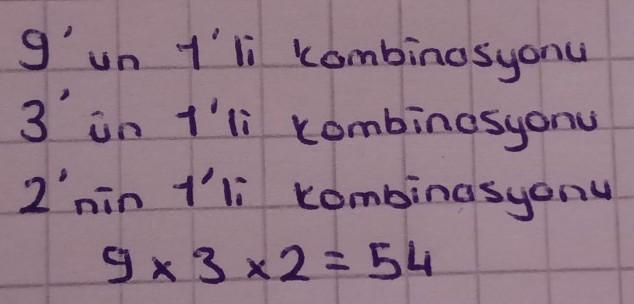 9'un 1'li kombinasyonu
3'ün 1'li kombinasyonu
2'nin 1'li kombinasyonu
9 x 3 x 2 = 54